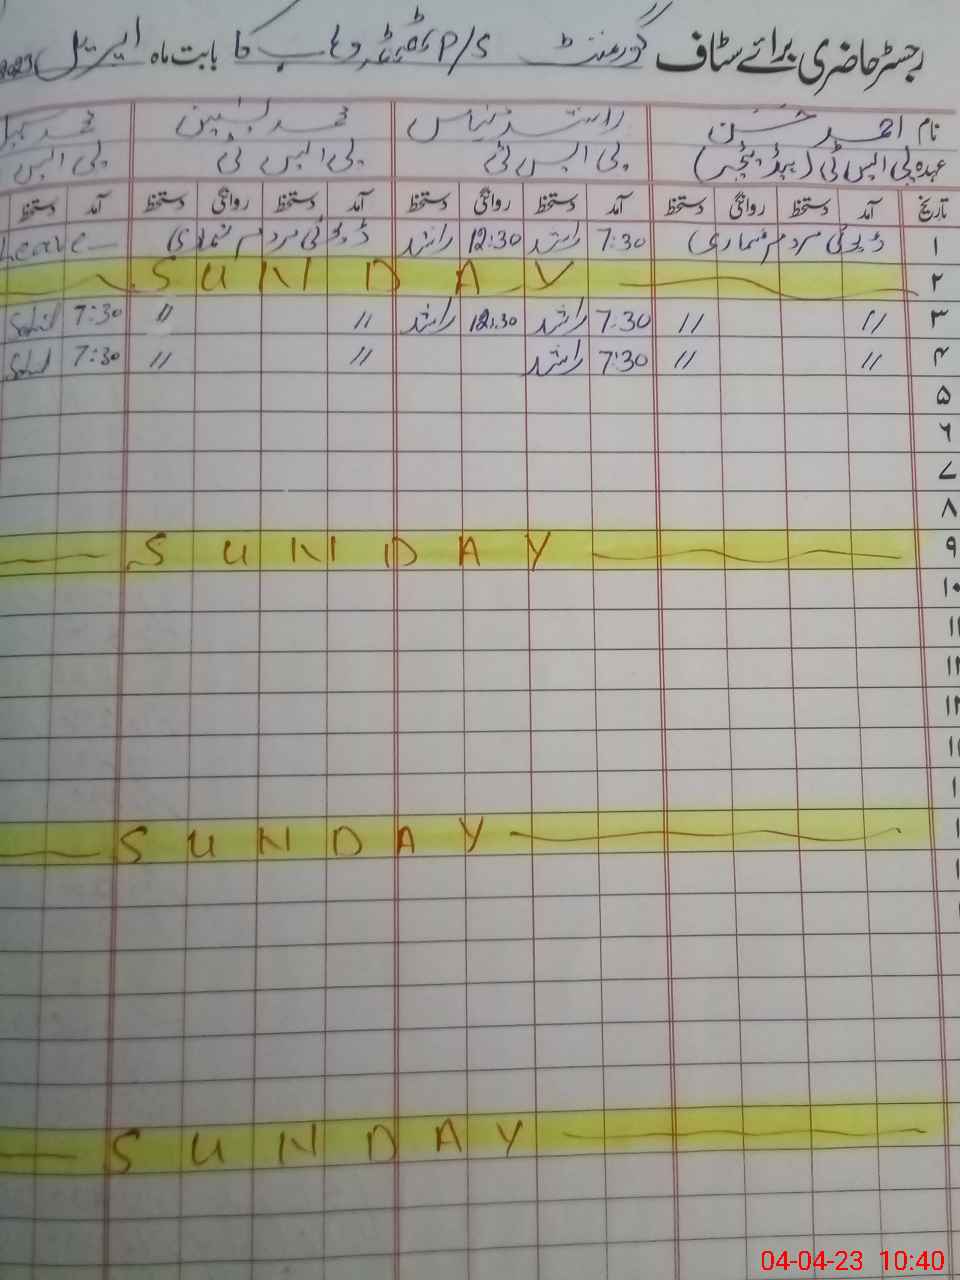 رجسٹر حاضری برائے سٹاف گورمنٹ P/S کا بابت ماہ اپریل 2023
نام احمد حسن راشد نیاس محمد محمد
عہدہ پی ایس ٹی (ہیڈ ٹیچر) پی ایس ٹی پی ایس ٹی پی ایس
تاریخ آمد دستخط روانگی دستخط آمد دستخط روانگی دستخط آمد دستخط روانگی دستخط آمد دستخط
۱ ڈیوٹی مردم شماری) 7:30 راشد 12:30 راشد ڈیوٹی مردم شماری) Leave
۲ SUNDAY
۳ // // 7:30 راشد 12:30 راشد // // 7:30
۴ // // 7:30 راشد // // 7:30
۵
۶
۷
۸
۹ SUNDAY
۱۰
SUNDAY
SUNDAY
04-04-23 10:40